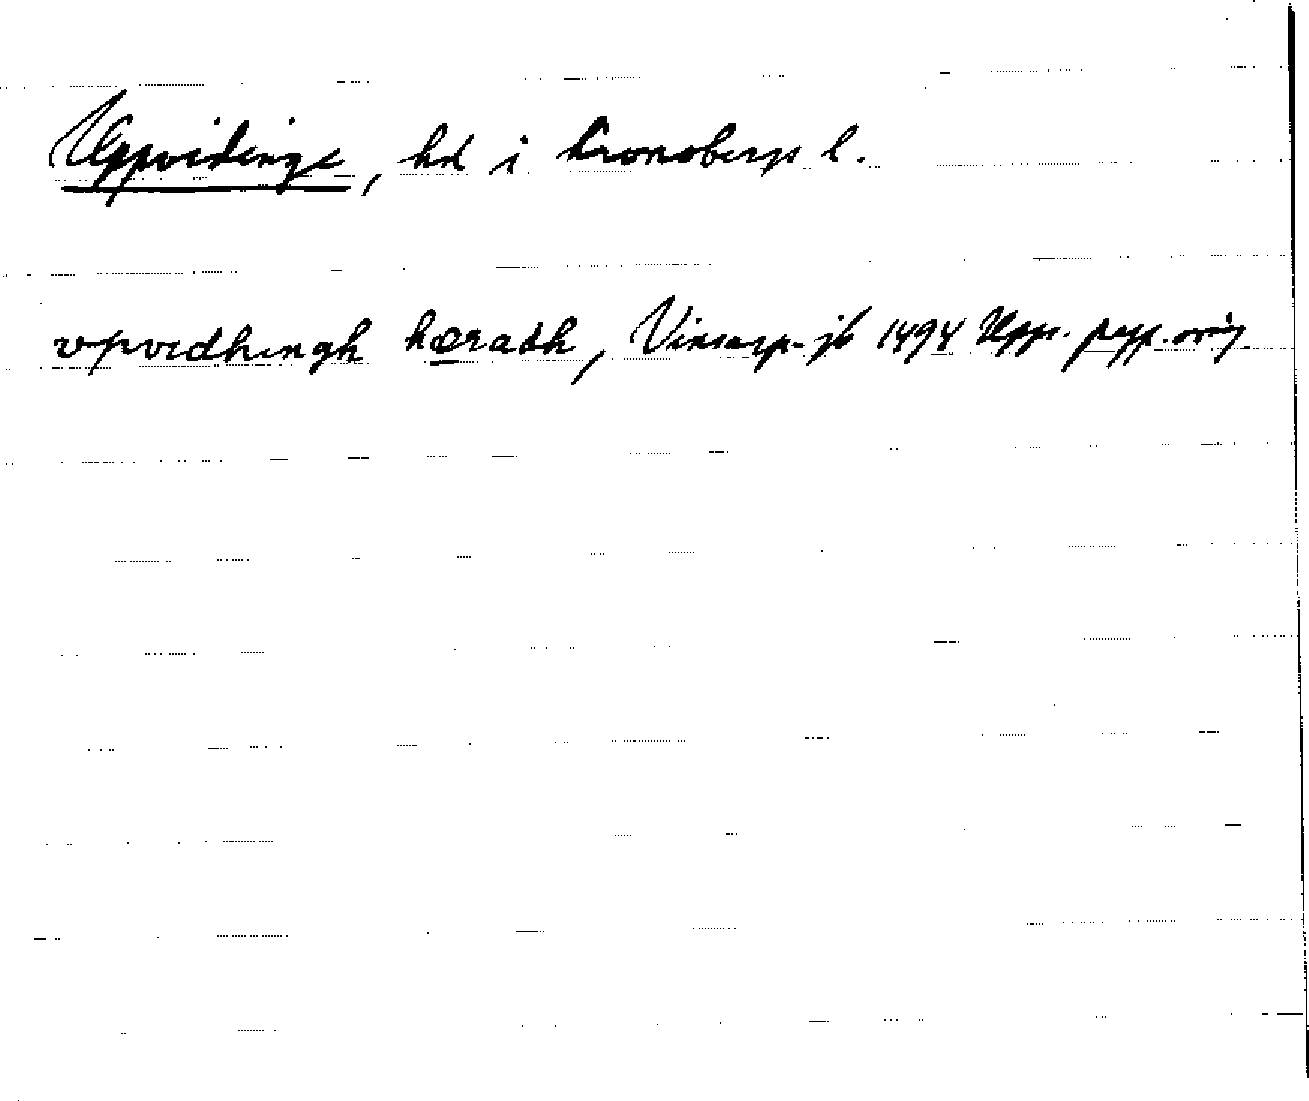 Uppvidinge, hd i Kronobergs l.
vpvidhingh hæradh, Vinsarp-jb 1494 Upps. papp. orig